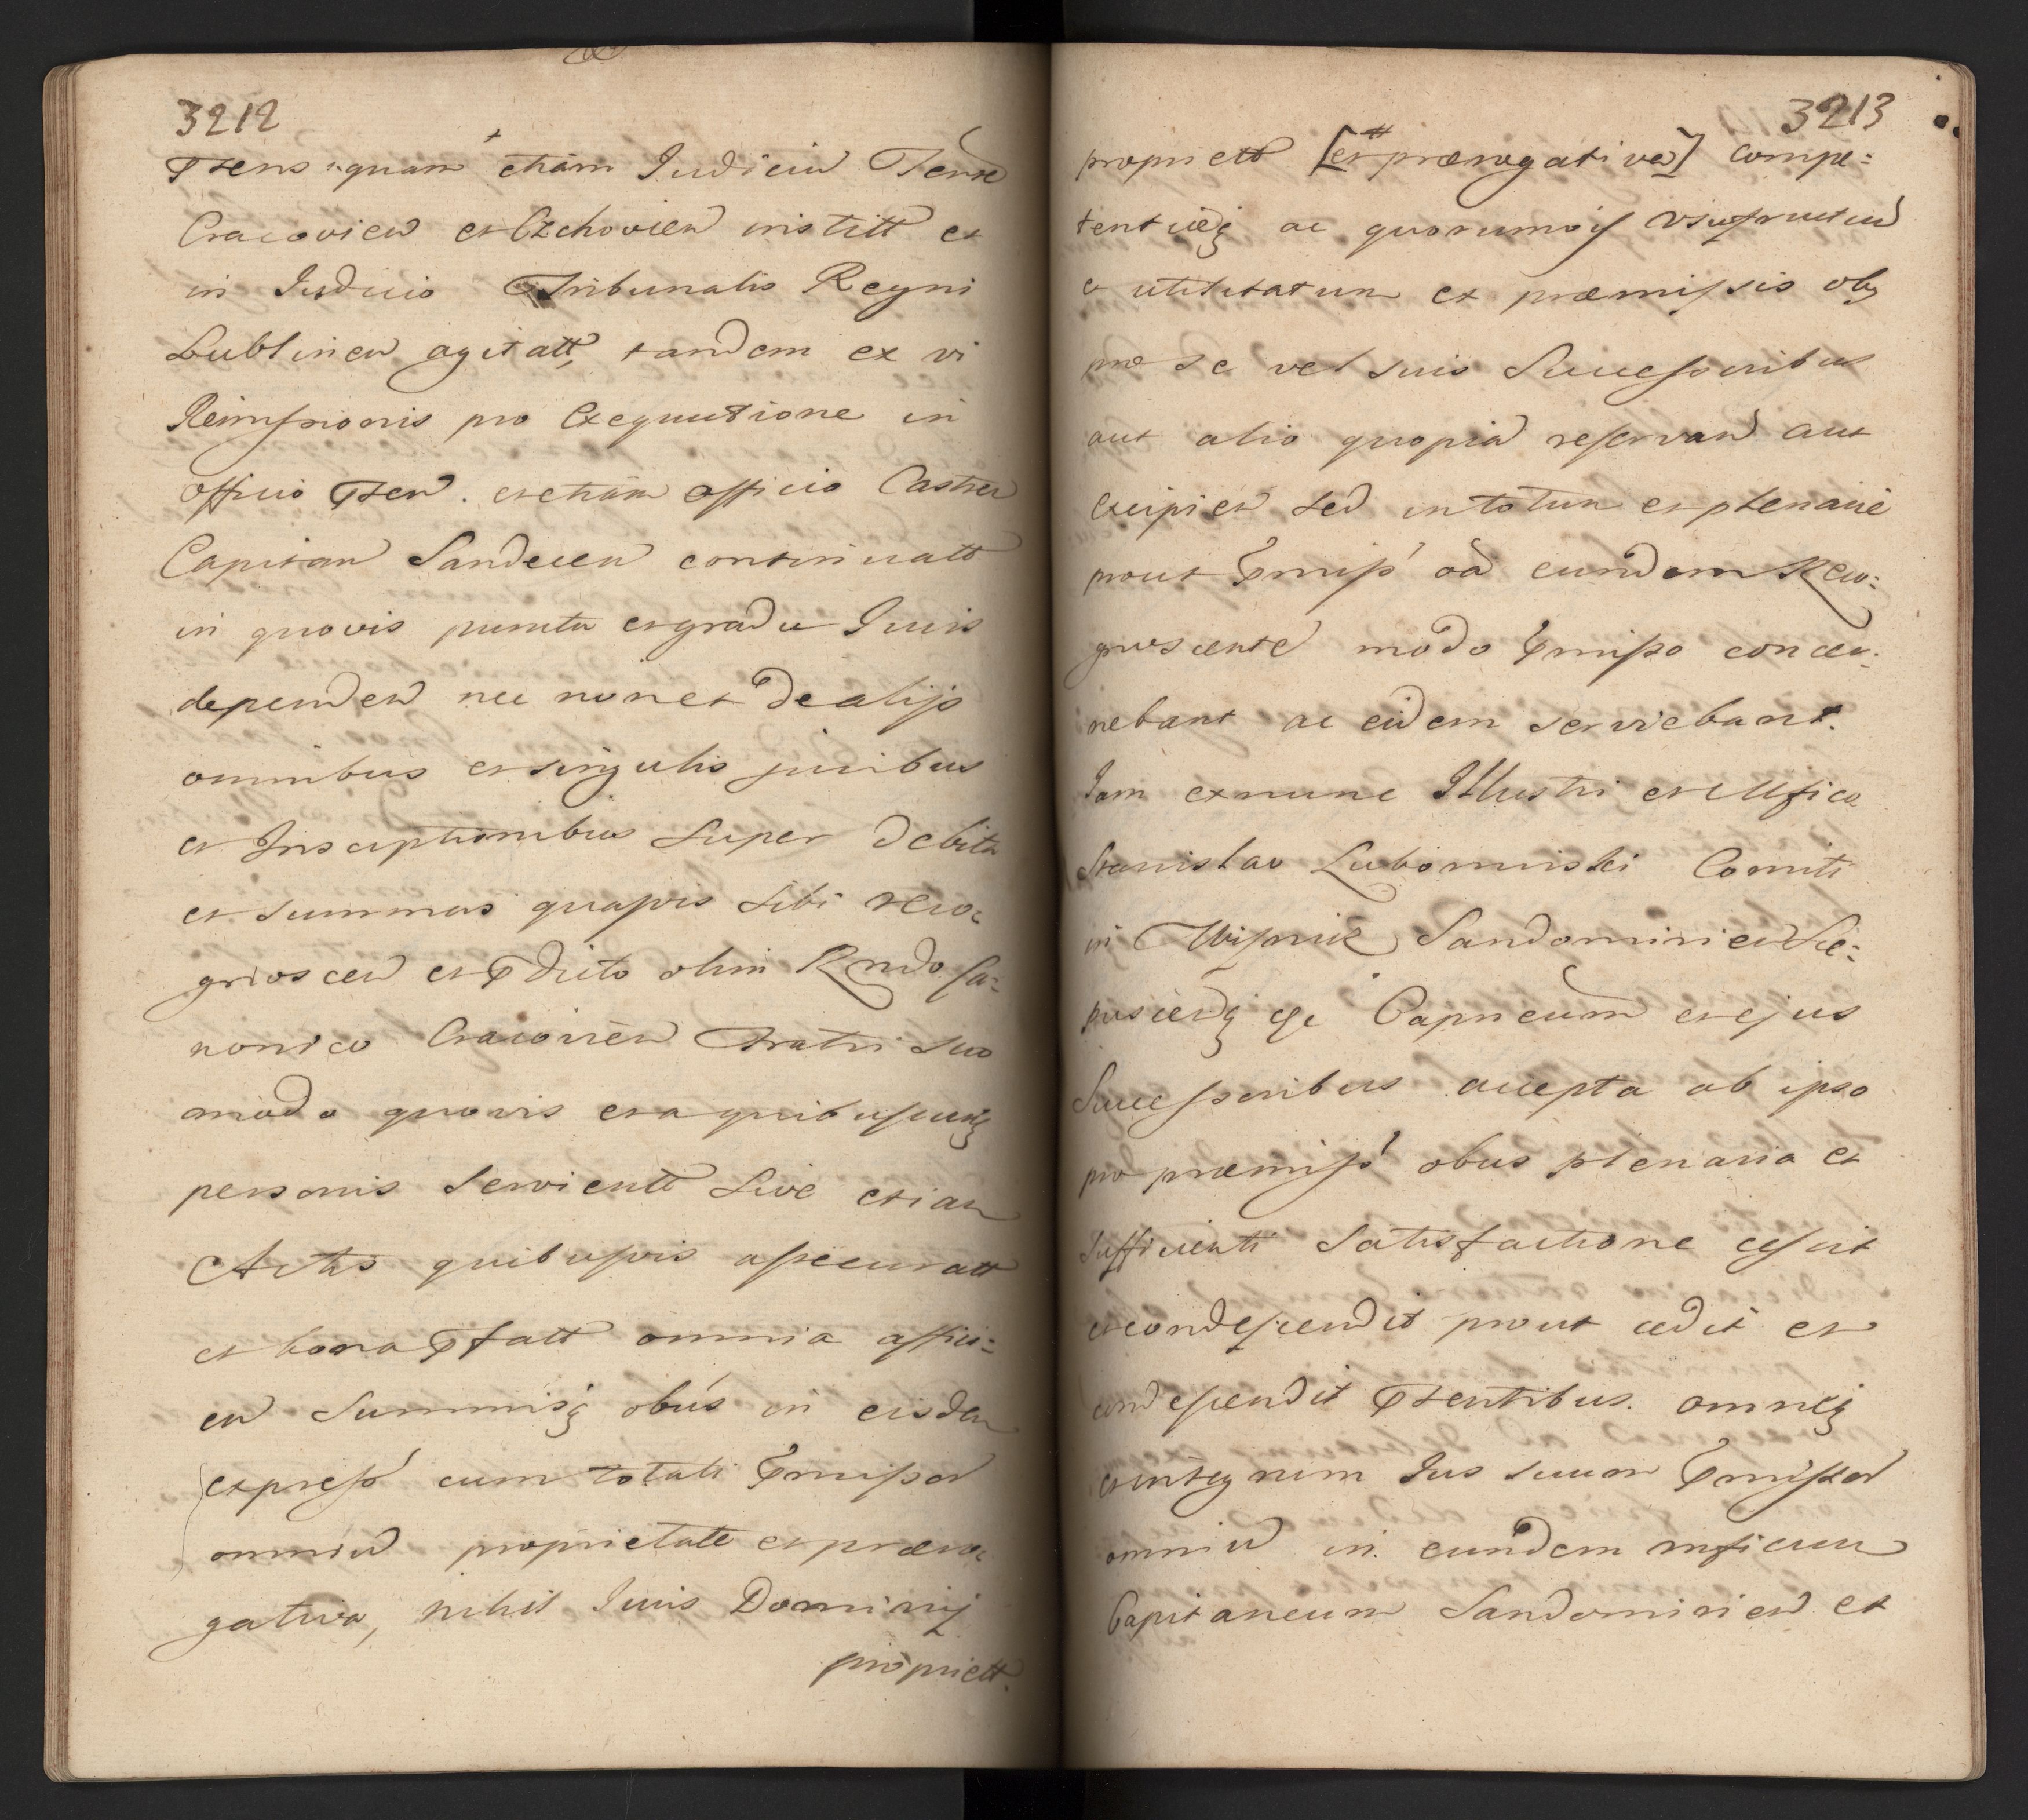 3212
Ptens quam etiam Judiciu Terre
Cracovien et Czchovien institt et
in Judicio Tribunalis Regni
Lublinen agitatt, tandem ex vi
Remissionis pro Exequutione in
officio Pten. et etiam officio Castren
Capitan Sandecen continuatt
in quovis puncto et gradu Juris
dependen nec non et de alijs
omnibus et singulis juribus
et Inscriptionibus super debita
et summas quasvis sibi reco:
gnoscen et P dicto olim Rndo Ca:
nonico Cracovien Fratri suo
modo quovis et a quibuscunq
personis servientt sive etiam
Actis quibusvis assecuratt
et bona Pfatt omnia affici:
en Summisq obus in eisdem
express cum totali Pmissor
omniu proprietate et præro:
gativa, nihil Juris Dominij
propriett.
3213
propriett [et prærogativæ] compe:
tentiæq ac quorumvis usufructuu
et utilitatum ex præmissis obus
pro se vel suis Successoribus
aut alio quopia reservan aut
excipien sed in totum et plenarie
prout Pmiss oa eundem Reco:
gnoscente modo Pmisso concer:
nebant ac eidem serviebant.
Iam exnunc Illustri et Mfico
Stanislao Lubomirski Comiti
in Wisnicz Sandomirien Sce:
pusienq &c Capneum et ejus
Successoribus accepta ab ipso
pro præmiss obus plenaria et
sufficienti satisfactione cessit
et condescendit prout cedit et
condescendit Ptentibus. omneq
et integrum Jus suum Pmissor
omniu in eundem mficum
Capitaneum Sandomirien et